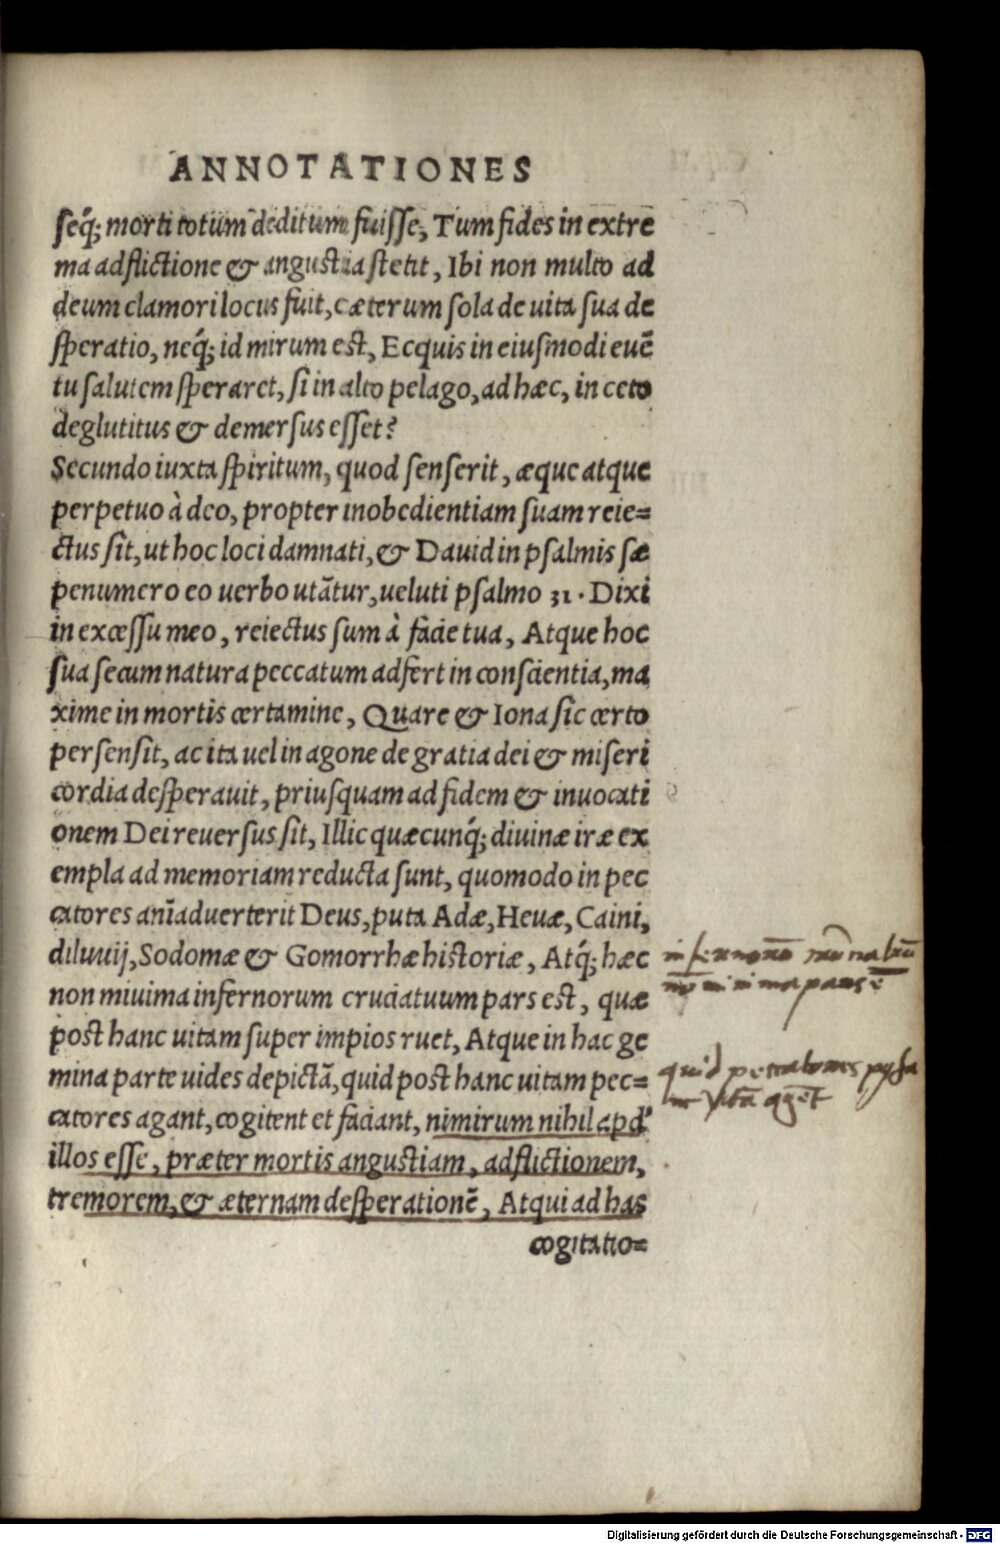 ANNOTATIONES
seq́; morti totum deditum fuisse, Tum fides in extre
ma adflictione & angustia stetit, Ibi non multo ad
deum clamori locus fuit, cæterum sola de uita sua de
speratio, neq́; id mirum est, Ecquis in eiusmodi euẽ
tu salutem speraret, si in alto pelago, ad hæc, in ceto
deglutitus & demersus esset?
Secundo iuxta spiritum, quod senserit, æque atque
perpetuo à deo, propter inobedientiam suam reie=
ctus sit, ut hoc loci damnati, & Dauid in psalmis sæ
penumero eo uerbo utãtur, ueluti psalmo 31. Dixi
in excessu meo, reiectus sum à facie tua, Atque hoc
sua secum natura peccatum adfert in conscientia, ma
xime in mortis certamine, Quare & Iona sic certo
persensit, ac ita uel in agone de gratia dei & miseri
cordia desperauit, priusquam ad fidem & inuocati
onem Dei reuersus sit, Illic quæcunq́; diuinæ iræ ex
empla ad memoriam reducta sunt, quomodo in pec
catores aĩaduerterit Deus, puta Adæ, Heuæ, Caini,
diluuij, Sodomæ & Gomorrhæ historiæ, Atq́; hæc
non miuima infernorum cruciatuum pars est, quæ
post hanc uitam super impios ruet, Atque in hac ge
mina parte uides depictã, quid post hanc uitam pec=
catores agant, cogitent et faciant, nimirum nihil apd'
illos esse, præter mortis angustiam, adflictionem,
tremorem, & æternam desperationẽ, Atqui ad has
cogitatio=
minima pars ẽ
quid
Digitalisierung gefördert durch die Deutsche Forschungsgemeinschaft - DFG